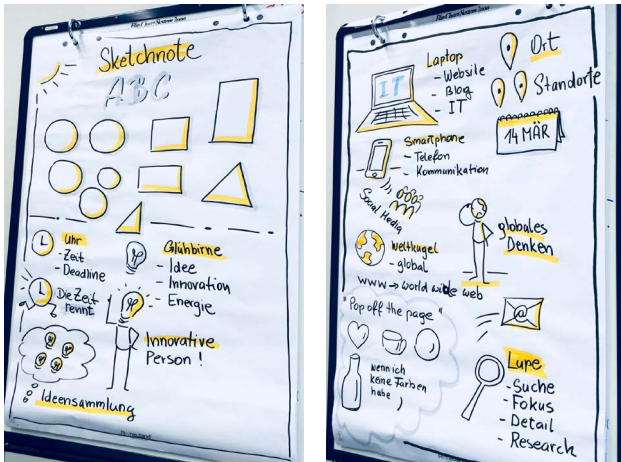 Sketchnote
ABC
Uhr
- Zeit
- Deadline
Die Zeit
rennt
Glühbirne
- Idee
- Innovation
- Energie
Innovative
Person !
Ideensammlung
Laptop
- Website
- Blog
- IT
IT
Ort
Standorte
14 MÄR
Smartphone
- Telefon
- Kommunikation
Social Media
Weltkugel
- global
www → world wide web
globales
Denken
"Pop off the page"
@
wenn ich
keine Farben
habe
Lupe
- Suche
- Fokus
- Detail
- Research